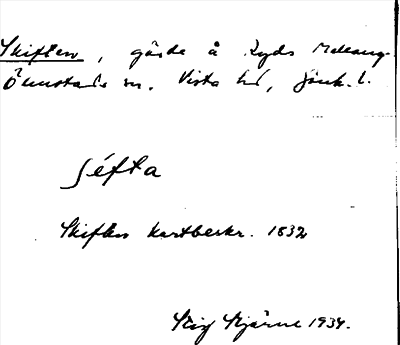 Skiften, gärde å Ryds Mellang.
Ölmstads sn. Vista hd, Jönk. l.
ʃéfta
Skiften kartbeskr. 1832
Stig Stjärne 1934.